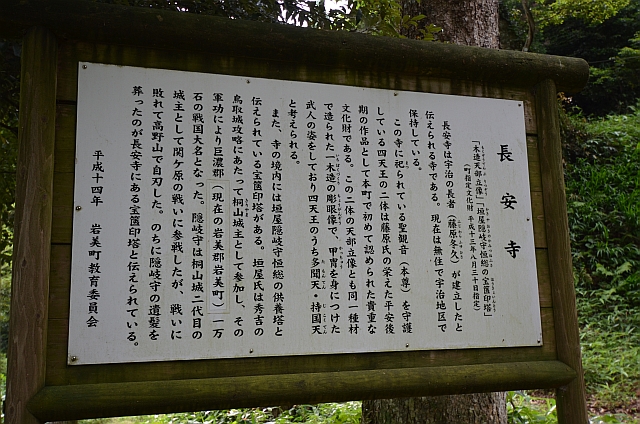 長安寺
「木造天部立像」「垣屋隠岐守恒総の宝篋印塔」
(町指定文化財 平成十三年八月三十日指定)
長安寺は宇治の長者(藤原冬久)が建立したと
伝えられる寺である。現在は無住で宇治地区で
保持している。
この寺に祀られている聖観音(本尊)を守護
している四天王の二体は藤原氏の栄えた平安後
期の作品として本町で初めて認められた貴重な
文化財である。この二体の天部立像とも同一種材
で造られた一木造の彫眼像で、甲冑を身につけた
武人の姿をしており四天王のうち多聞天・持国天
と考えられる。
また、寺の境内には垣屋隠岐守恒総の供養塔と
伝えられている宝篋印塔がある。垣屋氏は秀吉の
鳥取城攻略にあたって桐山城主として参加し、その
軍功により巨濃郡(現在の岩美郡岩美町)一万
石の戦国大名となった。隠岐守は桐山城二代目の
城主として関ケ原の戦いに参戦したが、戦いに
敗れて高野山で自刃した。のちに隠岐守の遺髪を
葬ったのが長安寺にある宝篋印塔と伝えられている。
平成十四年 岩美町教育委員会